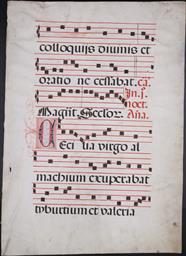 colloquijs diuinis et
oratio ne cessabat. ca.
In .j.
noct.
Magnt. Seclor. Ana.
Ceci lia virgo al
machium exuperabat
tyburtium et valeria